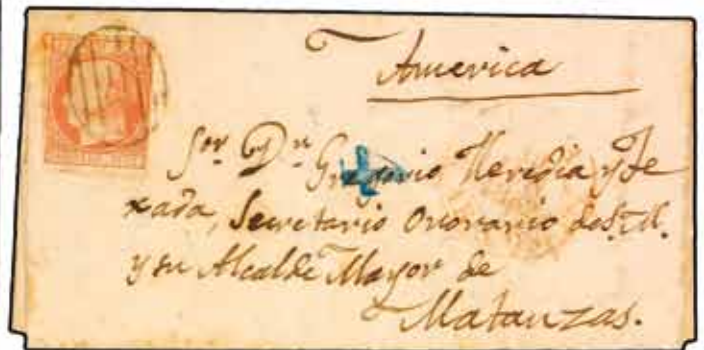 America
Sor. Dn. Gregorio Heredia y Te
xada, Secretario Onorario de S.M.
y su Alcalde Mayor de
Matanzas.